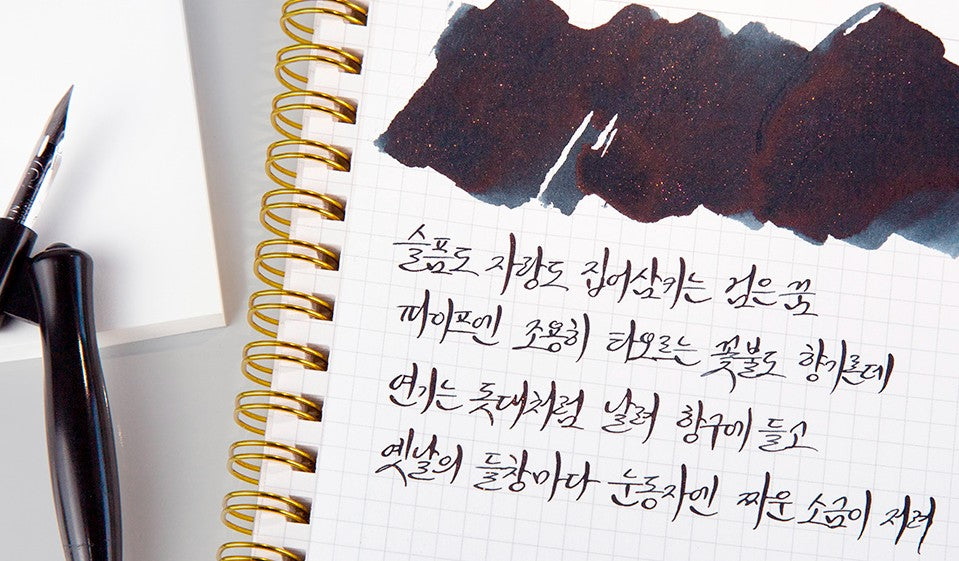 슬픔도 자랑도 집어삼키는 검은 꿈
파이프엔 조용히 타오르는 꽃불도 향기론데
연기는 돛대처럼 날려 항구에 들고
옛날의 들창마다 눈동자엔 짜운 소금이 저려